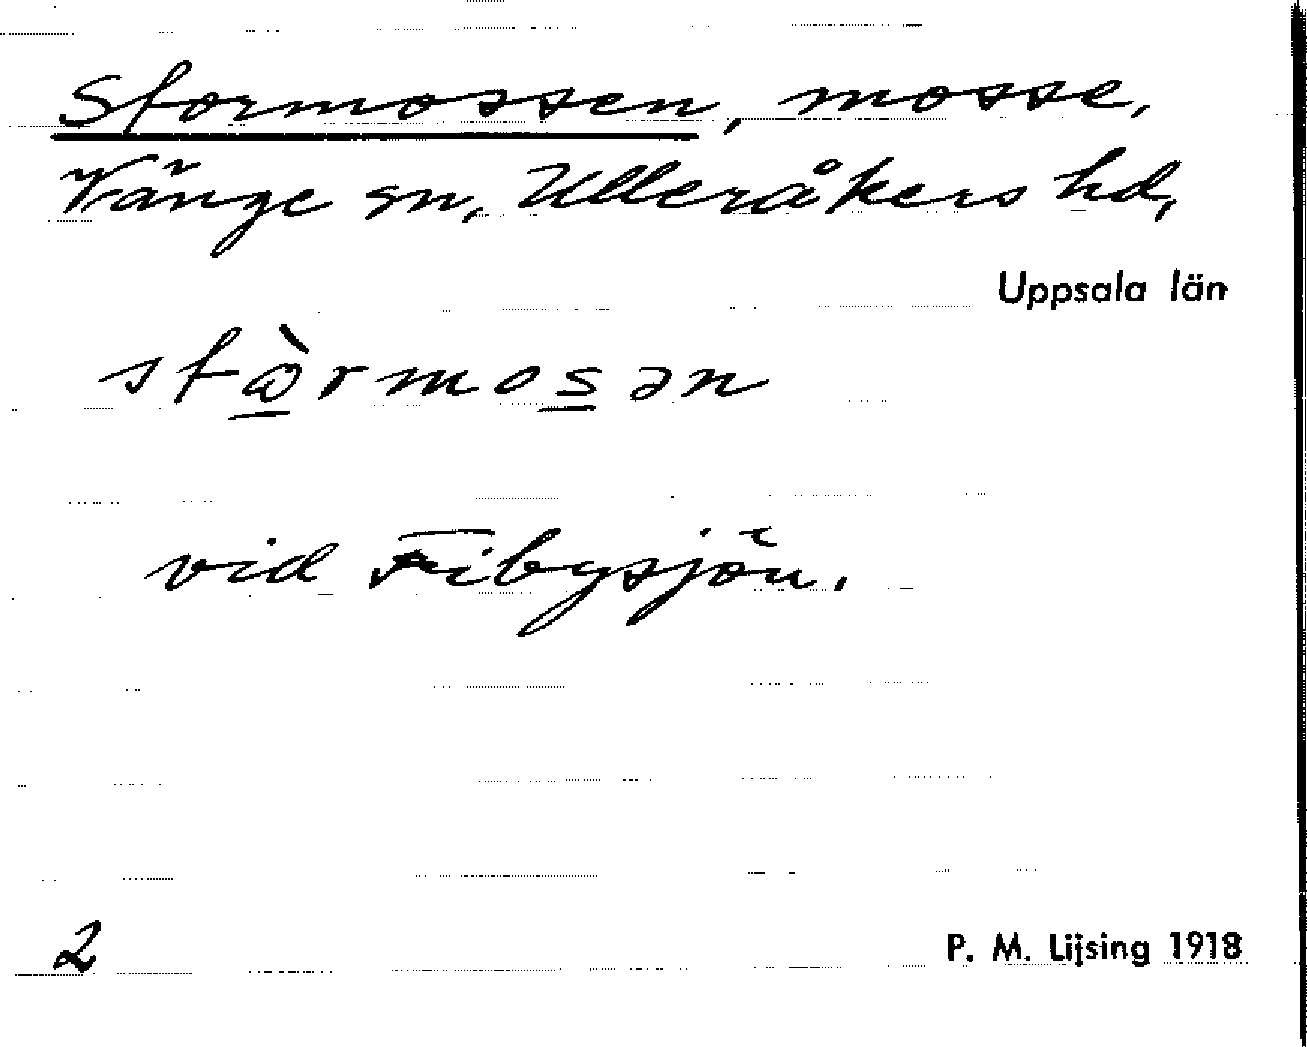 Stormossen, mosse,
Vänge sn, Ulleråkers hd,
Uppsala län
stὼ̲rmos̲ən
vid Fibysjön.
2
P. M. Lijsing 1918